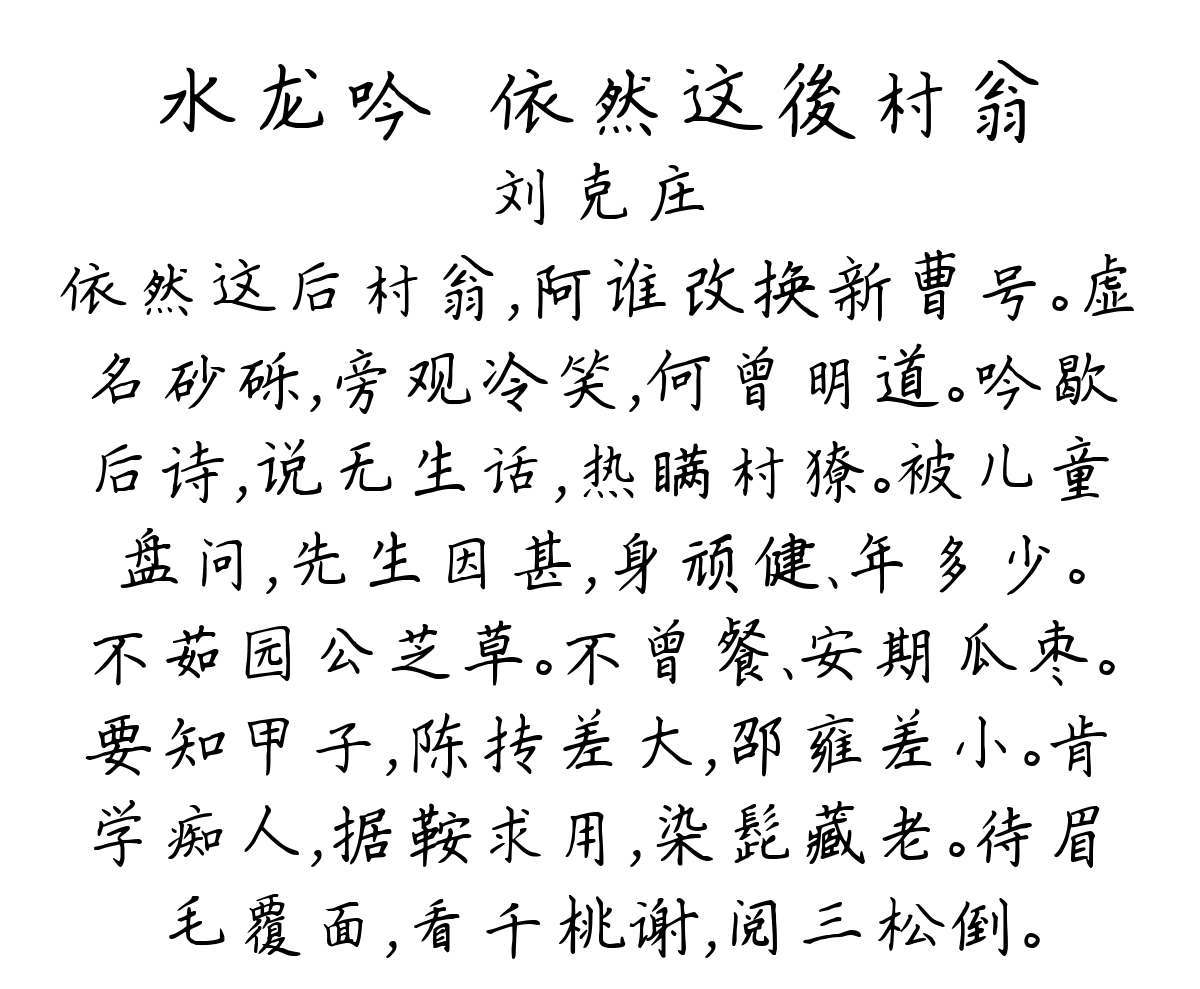 水龙吟 依然这後村翁
刘克庄
依然这后村翁,阿谁改换新曹号。虚
名砂砾,旁观冷笑,何曾明道。吟歇
后诗,说无生话,热瞒村獠。被儿童
盘问,先生因甚,身顽健、年多少。
不茹园公芝草。不曾餐、安期瓜枣。
要知甲子,陈抟差大,邵雍差小。肯
学痴人,据鞍求用,染髭藏老。待眉
毛覆面,看千桃谢,阅三松倒。